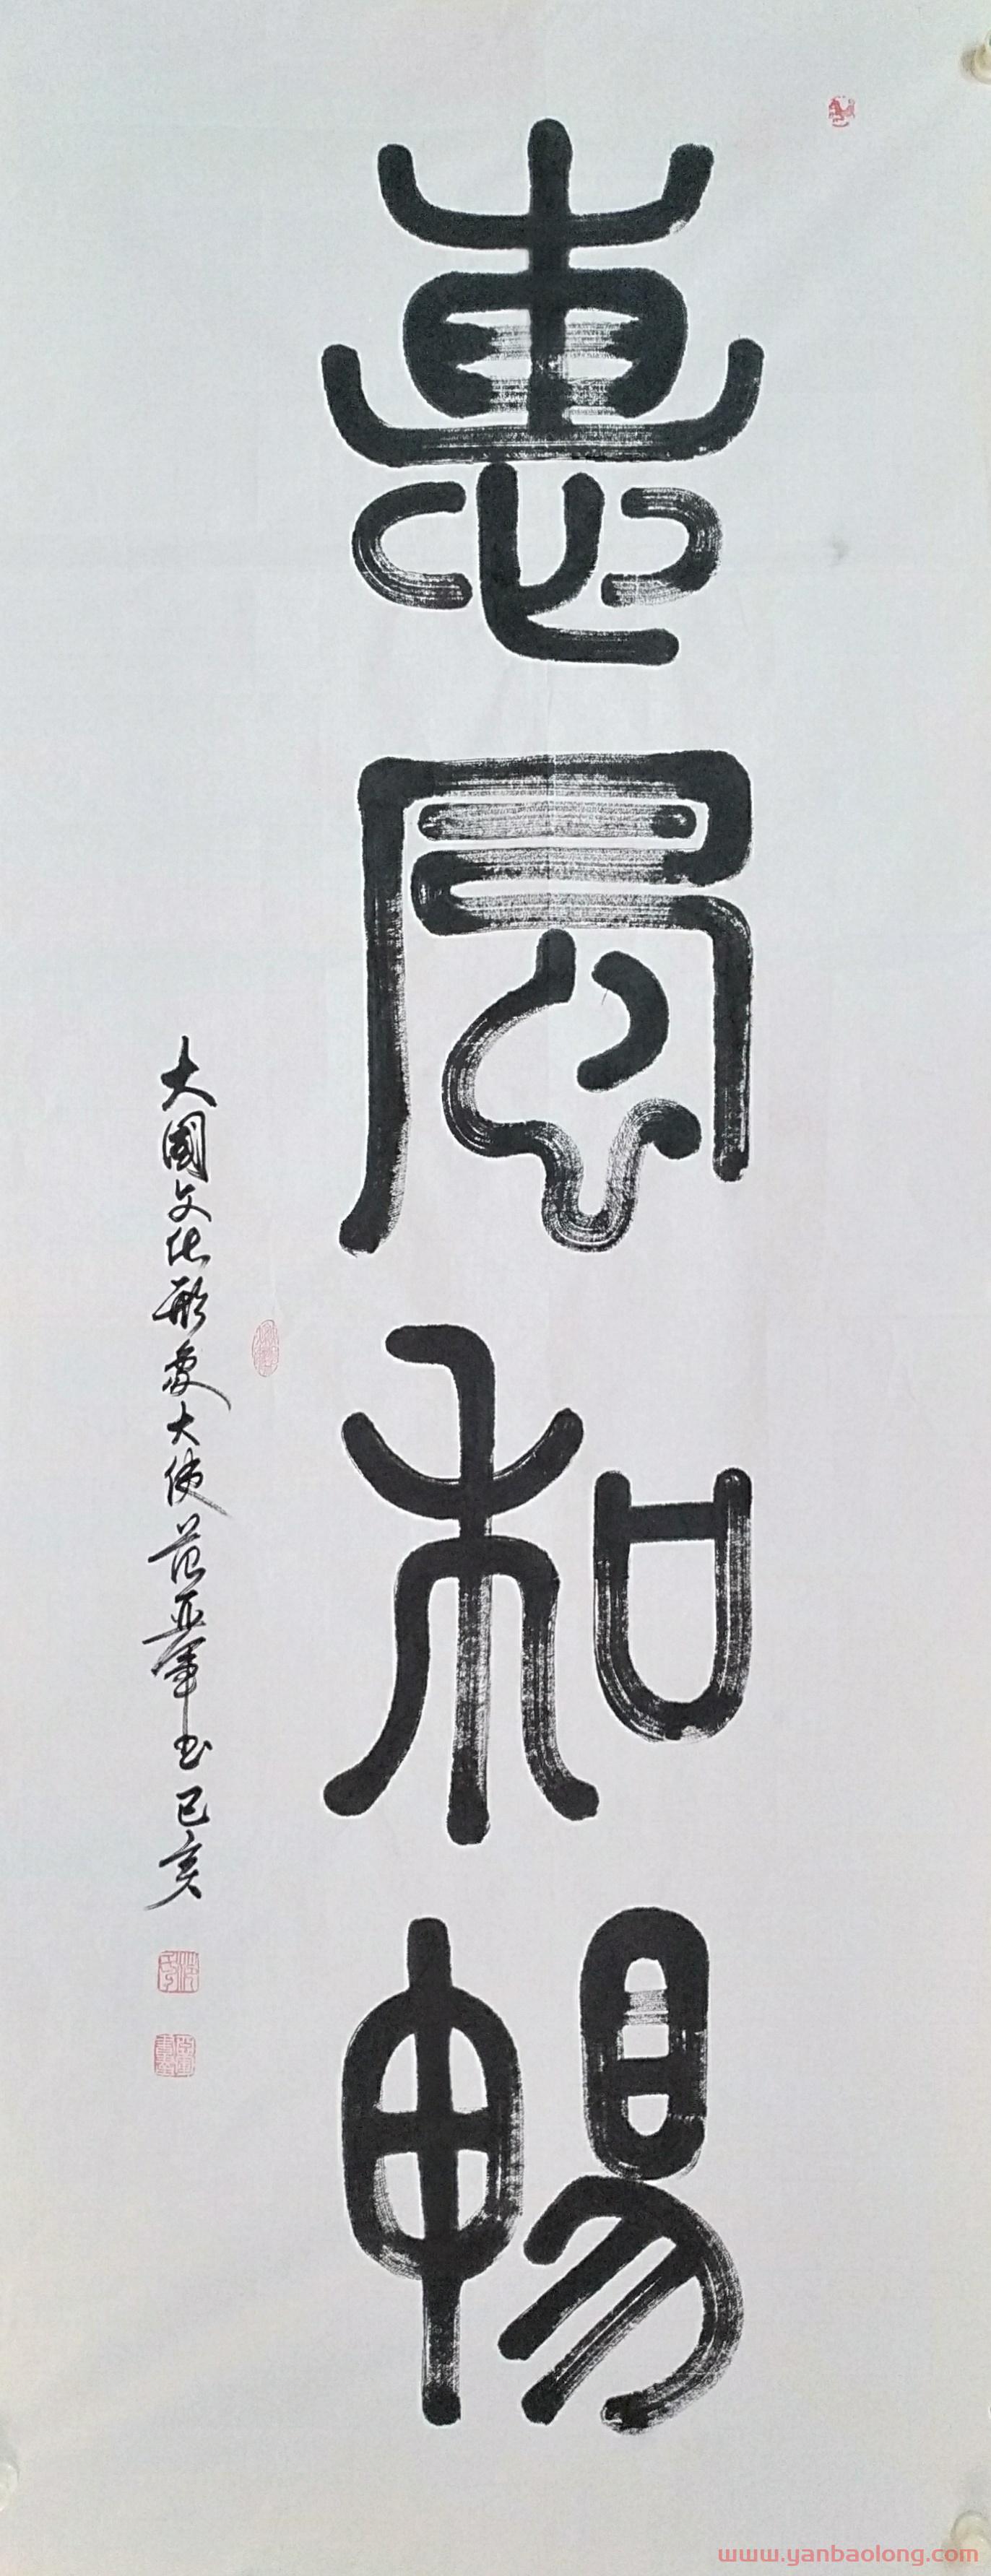 惠風和暢
大國文化形象大使范亚軍书己亥
www.yanbaolong.com